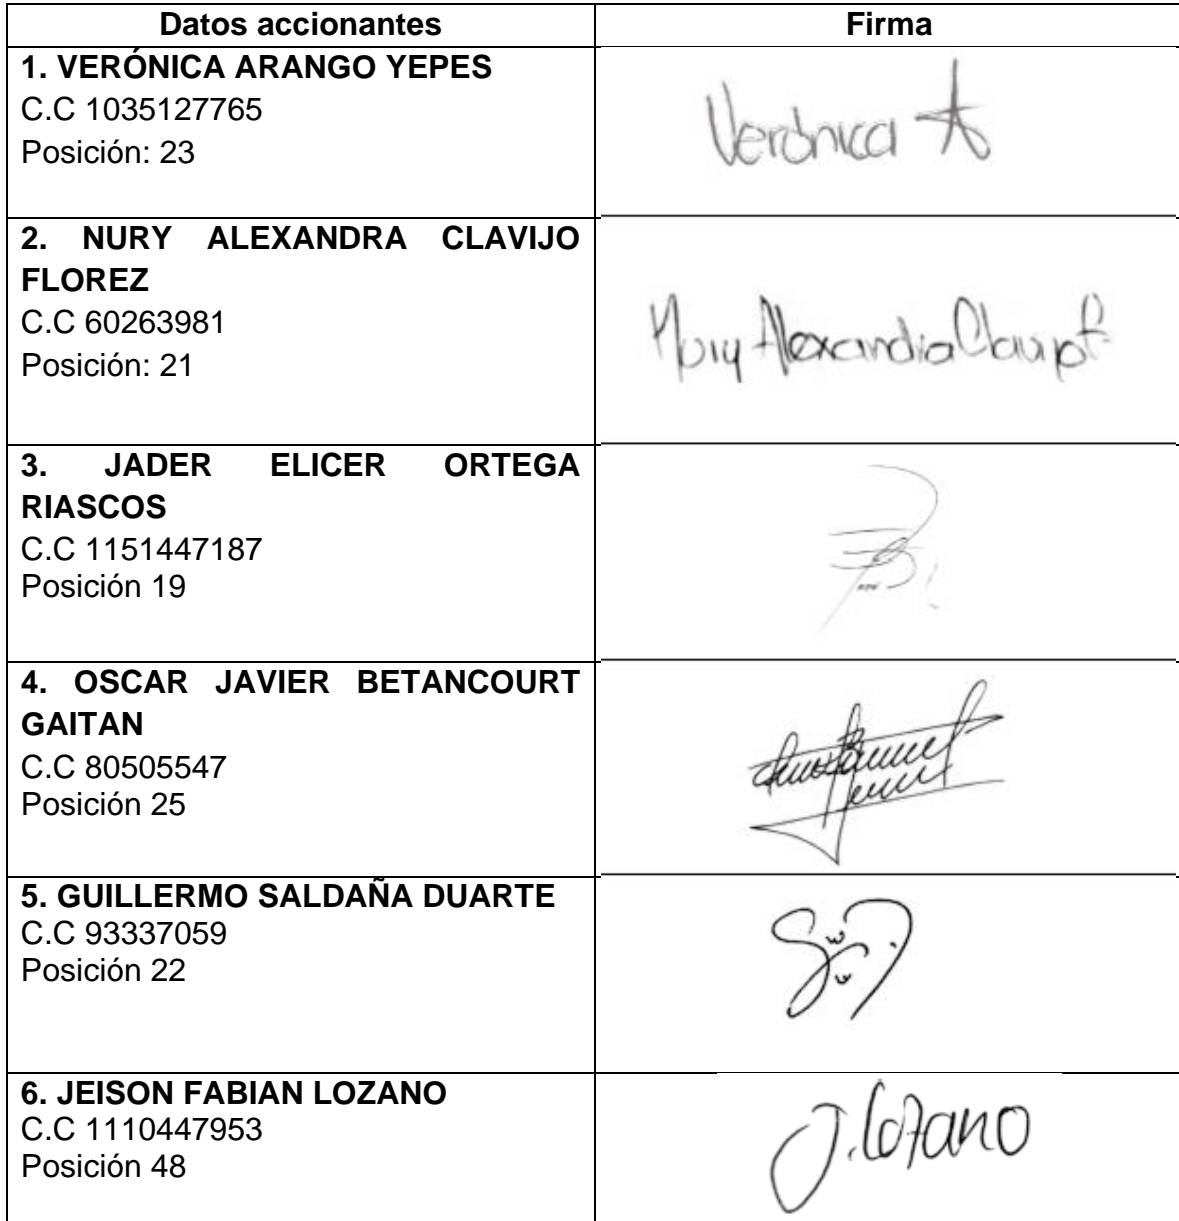 Datos accionantes
Firma
1. VERÓNICA ARANGO YEPES
C.C 1035127765
Posición: 23
Verónica A
2. NURY ALEXANDRA CLAVIJO
FLOREZ
C.C 60263981
Posición: 21
Nury Alexandra Clavijo F
3. JADER ELICER ORTEGA
RIASCOS
C.C 1151447187
Posición 19
4. OSCAR JAVIER BETANCOURT
GAITAN
C.C 80505547
Posición 25
5. GUILLERMO SALDAÑA DUARTE
C.C 93337059
Posición 22
6. JEISON FABIAN LOZANO
C.C 1110447953
Posición 48
J. Lozano